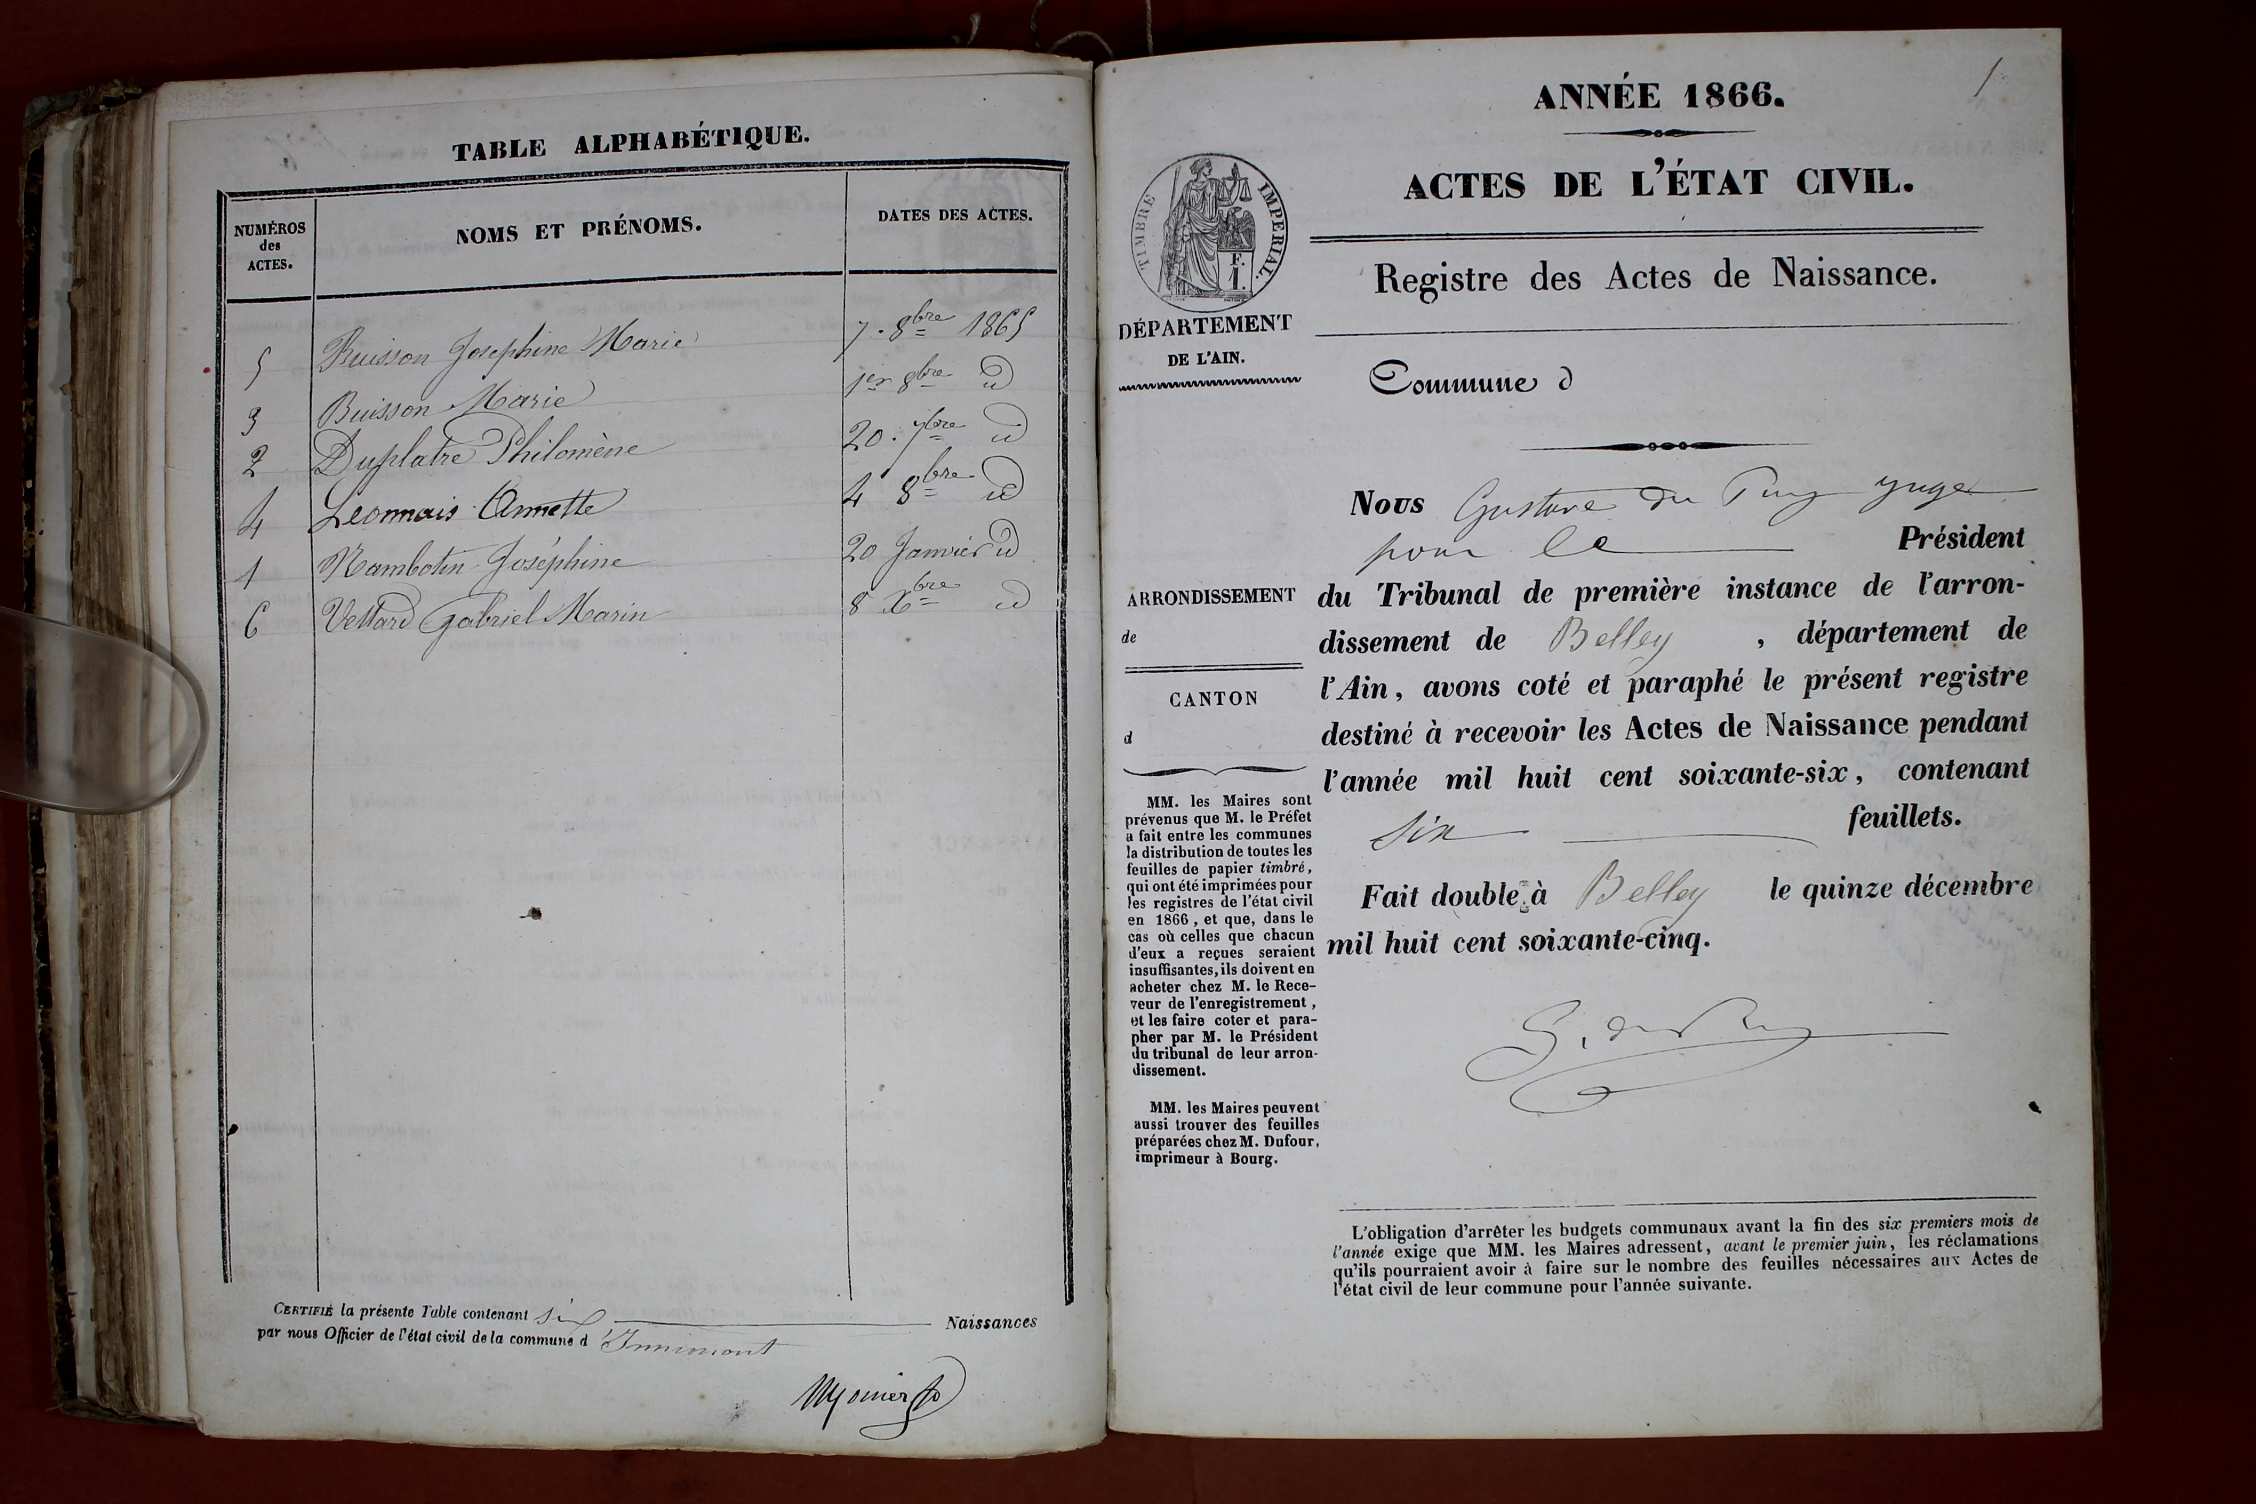 TABLE ALPHABÉTIQUE.
NUMÉROS
des
ACTES.
NOMS ET PRÉNOMS.
DATES DES ACTES.
5 Buisson Josephine Marie 7. 8bre 1865
3 Buisson Marie 1er 8bre id
2 Duplatre Philomène 20. 7bre id
4 Leonnais Annette 4 8bre id
1 Nambotin Joséphine 20 Janvier id
6 Vettard Gabriel Marin 8 Xbre id
CERTIFIÉ la présente Table contenant six Naissances
par nous Officier de l'état civil de la commune d'Innimont
1
ANNÉE 1866.
ACTES DE L'ÉTAT CIVIL.
Registre des Actes de Naissance.
TIMBRE IMPERIAL.
F.
1.
DÉPARTEMENT
DE L'AIN.
Commune d
Nous Gustave du Puy juge
pour le Président
du Tribunal de première instance de l'arron-
dissement de Belley , département de
l'Ain, avons coté et paraphé le présent registre
destiné à recevoir les Actes de Naissance pendant
l'année mil huit cent soixante-six, contenant
six feuillets.
Fait double à Belley le quinze décembre
mil huit cent soixante-cinq.
G. du Puy
ARRONDISSEMENT
de
CANTON
d
MM. les Maires sont
prévenus que M. le Préfet
a fait entre les communes
la distribution de toutes les
feuilles de papier timbré,
qui ont été imprimées pour
les registres de l'état civil
en 1866, et que, dans le
cas où celles que chacun
d'eux a reçues seraient
insuffisantes, ils doivent en
acheter chez M. le Rece-
veur de l'enregistrement,
et les faire coter et para-
pher par M. le Président
du tribunal de leur arron-
dissement.
MM. les Maires peuvent
aussi trouver des feuilles
préparées chez M. Dufour,
imprimeur à Bourg.
L'obligation d'arrêter les budgets communaux avant la fin des six premiers mois de
l'année exige que MM. les Maires adressent, avant le premier juin, les réclamations
qu'ils pourraient avoir à faire sur le nombre des feuilles nécessaires aux Actes de
l'état civil de leur commune pour l'année suivante.